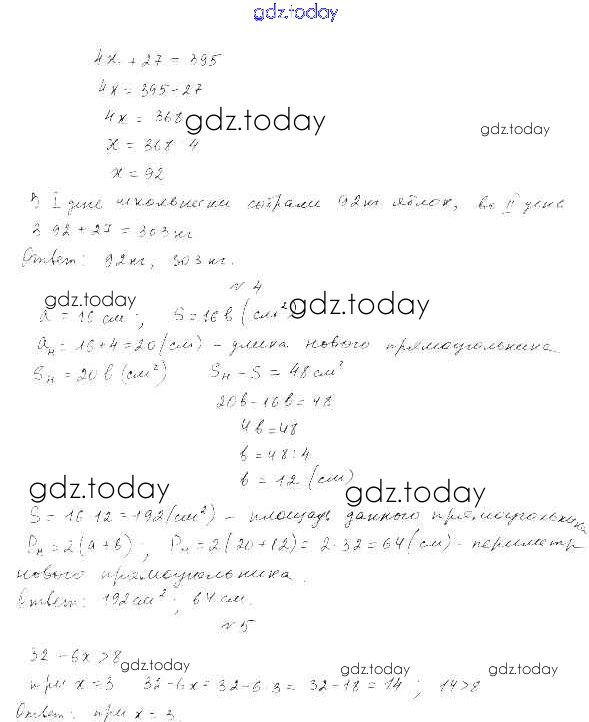 gdz.today
4x + 27 = 395
4x = 395 - 27
4x = 368 gdz.today gdz.today
x = 368 4
x = 92
В I день школьники собрали 92 кг яблок, во II день
3 92 + 27 = 303 кг
Ответ: 92 кг, 303 кг.
№ 4
gdz.today gdz.today
a = 16 см; S = 16b (см²)
aн = 16 + 4 = 20 (см) - длина нового прямоугольника
Sн = 20b (см²) Sн - S = 48 см²
20b - 16b = 48
4b = 48
b = 48 : 4
b = 12 (см)
gdz.today gdz.today
S = 16 12 = 192 (см²) - площадь данного прямоугольника
Pн = 2(a + b); Pн = 2(20 + 12) = 2 · 32 = 64 (см) - периметр
нового прямоугольника.
Ответ: 192 см²; 64 см.
№ 5
32 - 6x > 8
gdz.today gdz.today gdz.today
при x = 3 32 - 6x = 32 - 6 · 3 = 32 - 18 = 14; 14 > 8
Ответ: при x = 3.